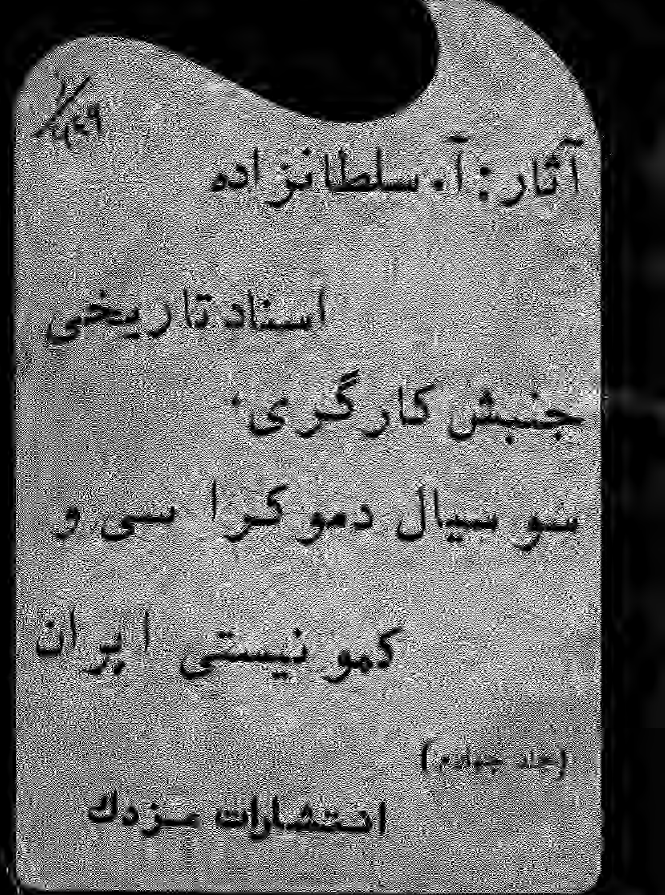 آثار: آ. سلطانزاده
اسناد تاریخی
جنبش کارگری.
سوسیال دموکراسی و
کمونیستی ایران
(جلد چهارم)
انتشارات مزدك